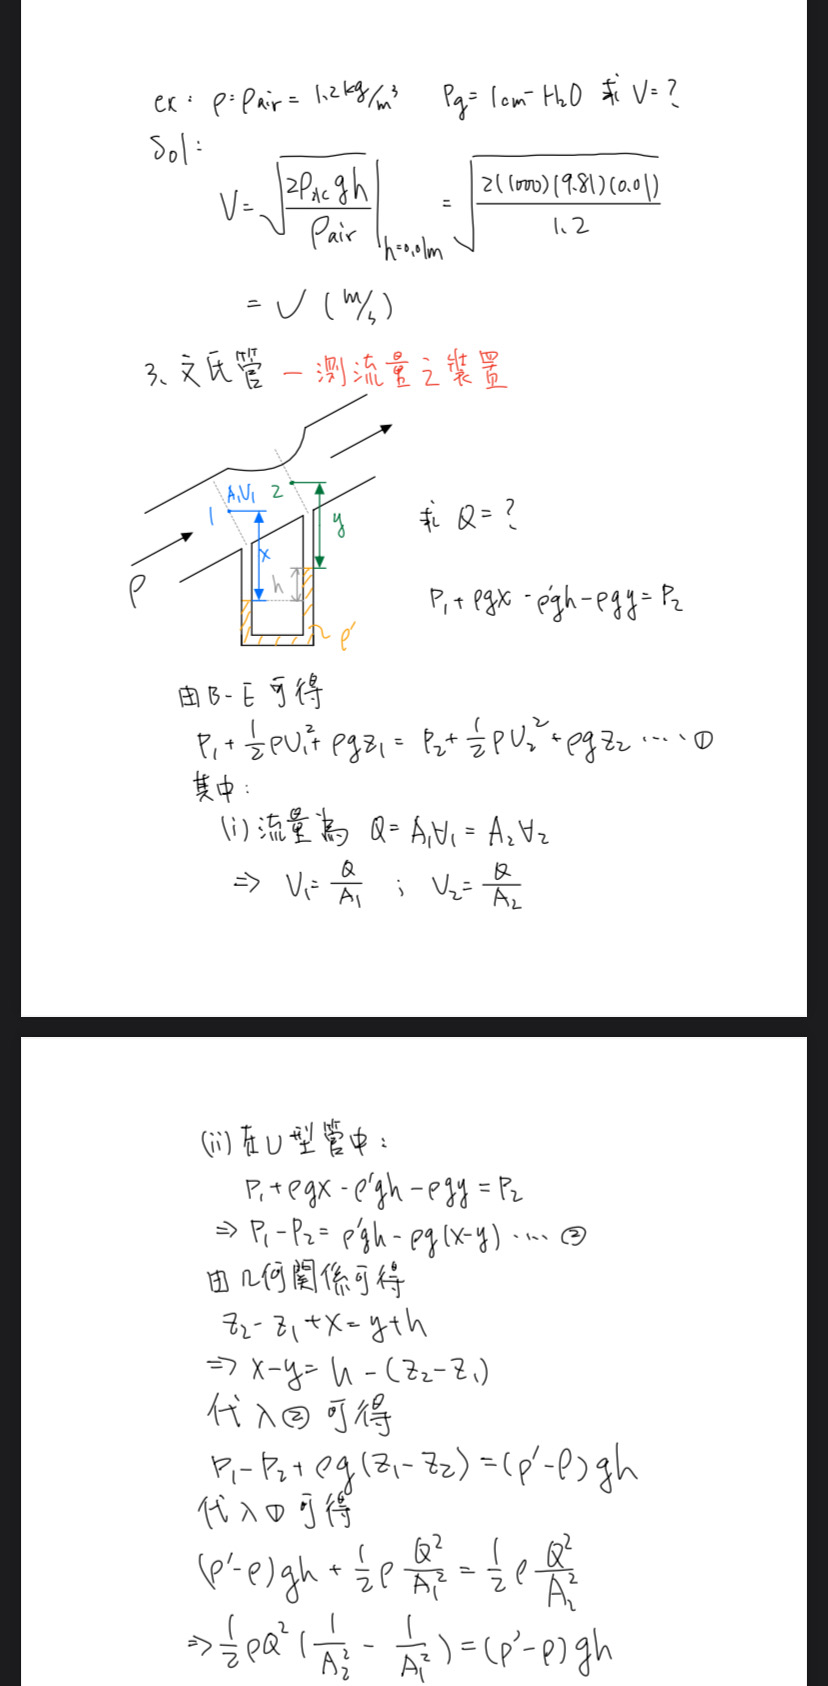 ex: ρ=ρair = 1.2 kg/m³ Pg = 1cm-H₂O 求 V=?
Sol:
V = √(2ρ水gh/ρair) |h=0.01m = √(2(1000)(9.81)(0.01)/1.2)
= ✓ (m/s)
3、文氏管 — 測流量之裝置
A₁V₁
1
2
x
y
h
ρ
ρ'
求 Q=?
P₁+ρgx-ρ'gh-ρgy=P₂
由B-E可得
P₁+½ρV₁²+ρgz₁=P₂+½ρV₂²+ρgz₂ ....①
其中:
(i)流量為 Q=A₁V₁=A₂V₂
⇒ V₁=Q/A₁ ; V₂=Q/A₂
(ii)在U型管中:
P₁+ρgx-ρ'gh-ρgy=P₂
⇒ P₁-P₂=ρ'gh-ρg(x-y) ....②
由几何關係可得
z₂-z₁+x=y+h
⇒ x-y=h-(z₂-z₁)
代入②可得
P₁-P₂+ρg(z₁-z₂)=(ρ'-ρ)gh
代入①可得
(ρ'-ρ)gh+½ρQ²/A₁²=½ρQ²/A₂²
⇒ ½ρQ²(1/A₂²-1/A₁²)=(ρ'-ρ)gh